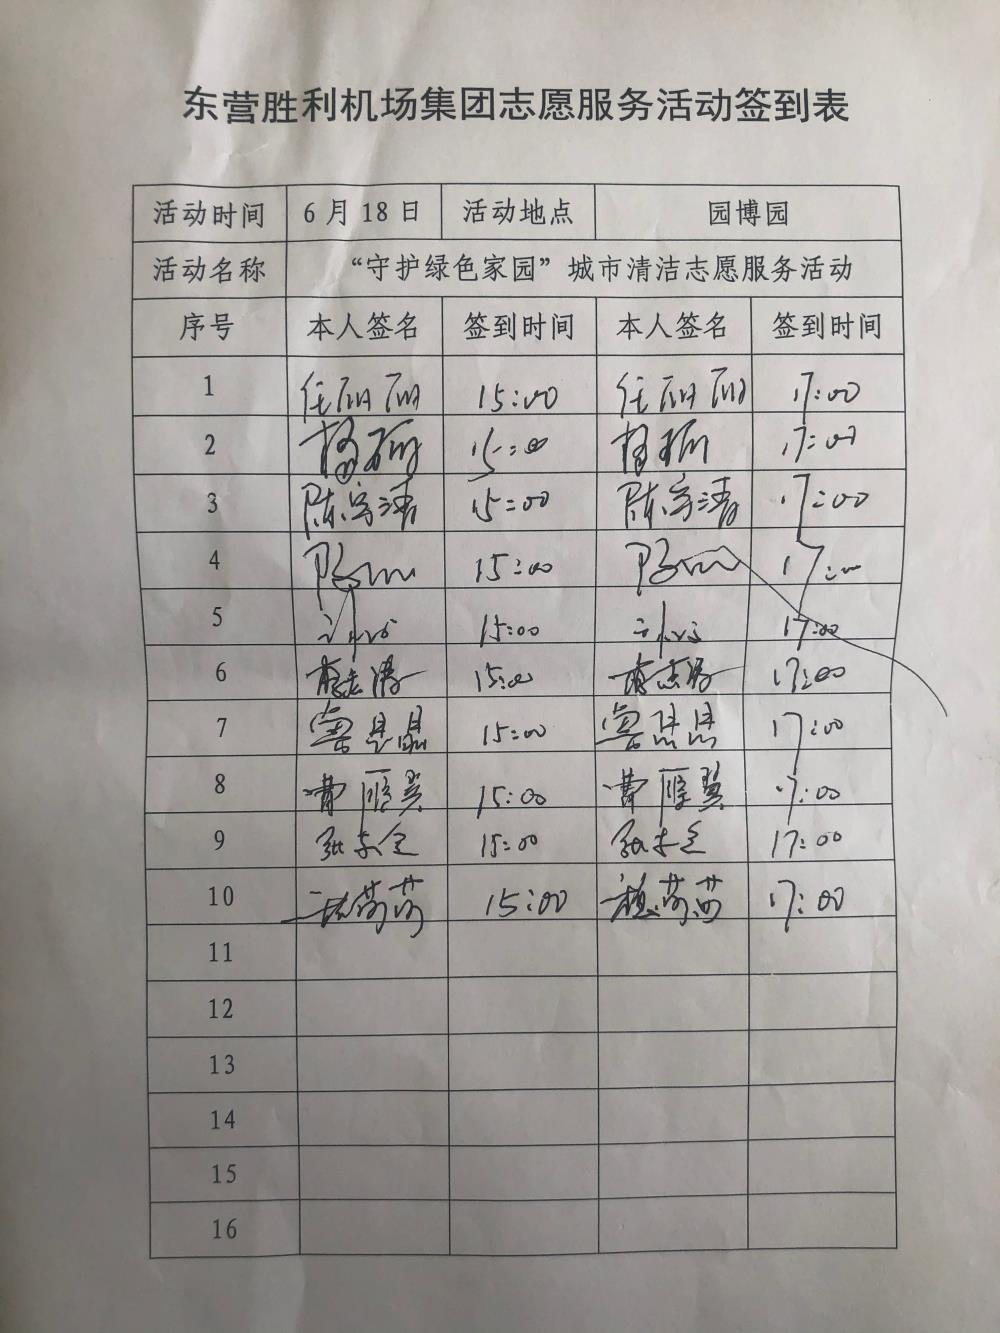 东营胜利机场集团志愿服务活动签到表
活动时间 6月18日 活动地点 园博园
活动名称 “守护绿色家园”城市清洁志愿服务活动
序号 本人签名 签到时间 本人签名 签到时间
1 任丽丽 15:00 任丽丽 17:00
2 15:00 17:00
3 陈宇清 15:00 陈宇清 17:00
4 15:00 17:00
5 15:00 17:00
6 15:00 17:00
7 15:00 17:00
8 曹雁翼 15:00 曹雁翼 17:00
9 15:00 17:00
10 莎莎 15:00 莎莎 17:00
11
12
13
14
15
16